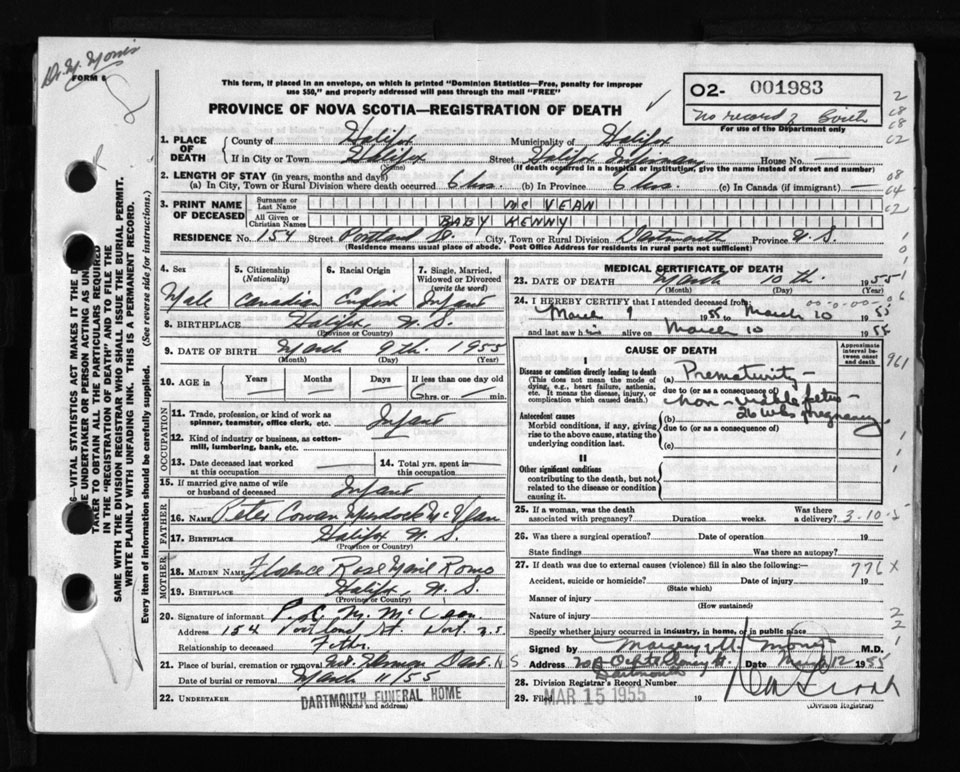 FORM 6
This form, if placed in an envelope, on which is printed "Dominion Statistics—Free, penalty for improper
use $50," and properly addressed will pass through the mail "FREE"
O2- 001983
PROVINCE OF NOVA SCOTIA—REGISTRATION OF DEATH
No record of Birth
For use of the Department only
1. PLACE OF DEATH
County of Halifax Municipality of Halifax
If in City or Town Halifax Street Halifax Infirmary House No. —
(Name) (If death occurred in a hospital or institution, give the name instead of street and number)
2. LENGTH OF STAY (in years, months and days)
(a) In City, Town or Rural Division where death occurred 6 hrs. (b) In Province 6 hrs. (c) In Canada (if immigrant) —
3. PRINT NAME OF DECEASED
Surname or Last Name MC VEAN
All Given or Christian Names BABY KENNY
RESIDENCE No. 154 Street Portland St. City, Town or Rural Division Dartmouth Province N.S.
(Residence means usual place of abode. Post Office Address for residents in rural parts not sufficient)
4. Sex Male
5. Citizenship (Nationality) Canadian
6. Racial Origin English
7. Single, Married, Widowed or Divorced (write the word) Infant
8. BIRTHPLACE Halifax N.S.
(Province or Country)
9. DATE OF BIRTH March 9th. 1955
(Month) (Day) (Year)
10. AGE in Years — Months — Days — If less than one day old 6 hrs. — min.
OCCUPATION
11. Trade, profession, or kind of work as spinner, teamster, office clerk, etc. Infant
12. Kind of industry or business, as cotton-mill, lumbering, bank, etc.
13. Date deceased last worked at this occupation —
14. Total yrs. spent in this occupation —
15. If married give name of wife or husband of deceased Infant
FATHER
16. NAME Peter Cowan Murdock McVean
17. BIRTHPLACE Halifax N.S.
(Province or Country)
MOTHER
18. MAIDEN NAME Florence Rose Marie Romo
19. BIRTHPLACE Halifax N.S.
(Province or Country)
20. Signature of informant P. C. M. McVean
Address 154 Portland St. Dart. N.S.
Relationship to deceased Father
21. Place of burial, cremation or removal Dart. N S
Date of burial or removal March 11/55
22. UNDERTAKER DARTMOUTH FUNERAL HOME
(Name and address)
MEDICAL CERTIFICATE OF DEATH
23. DATE OF DEATH March 10th 1955
(Month) (Day)
24. I HEREBY CERTIFY that I attended deceased from
March 9 1955 to March 10 1955
and last saw him alive on March 10 1955
CAUSE OF DEATH
Approximate interval between onset and death
I
Disease or condition directly leading to death
(This does not mean the mode of dying, e.g., heart failure, asthenia, etc. It means the disease, injury, or complication which caused death.)
(a) Prematurity -
due to (or as a consequence of)
non-viable fetus -
26 wks pregnancy
Antecedent causes
Morbid conditions, if any, giving rise to the above cause, stating the underlying condition last.
(b)
due to (or as a consequence of)
(c)
II
Other significant conditions
contributing to the death, but not related to the disease or condition causing it.
25. If a woman, was the death associated with pregnancy? Duration weeks. Was there a delivery? 3-10-5
26. Was there a surgical operation? Date of operation 19
State findings Was there an autopsy?
27. If death was due to external causes (violence) fill in also the following:— 776X
Accident, suicide or homicide? Date of injury 19
(State which)
Manner of injury
(How sustained)
Nature of injury
Specify whether injury occurred in industry, in home, or in public place
Signed by M.D.
Address Dartmouth Date March 12 1955
28. Division Registrar's Record Number
29. Filed MAR 15 1955 19
(Division Registrar)
TAKER TO OBTAIN ALL THE PARTICULARS REQUIRED
IN THE "REGISTRATION OF DEATH" AND TO FILE THE
SAME WITH THE DIVISION REGISTRAR WHO SHALL ISSUE THE BURIAL PERMIT.
WRITE PLAINLY WITH UNFADING INK. THIS IS A PERMANENT RECORD.
Every item of information should be carefully supplied. (See reverse side for instructions.)